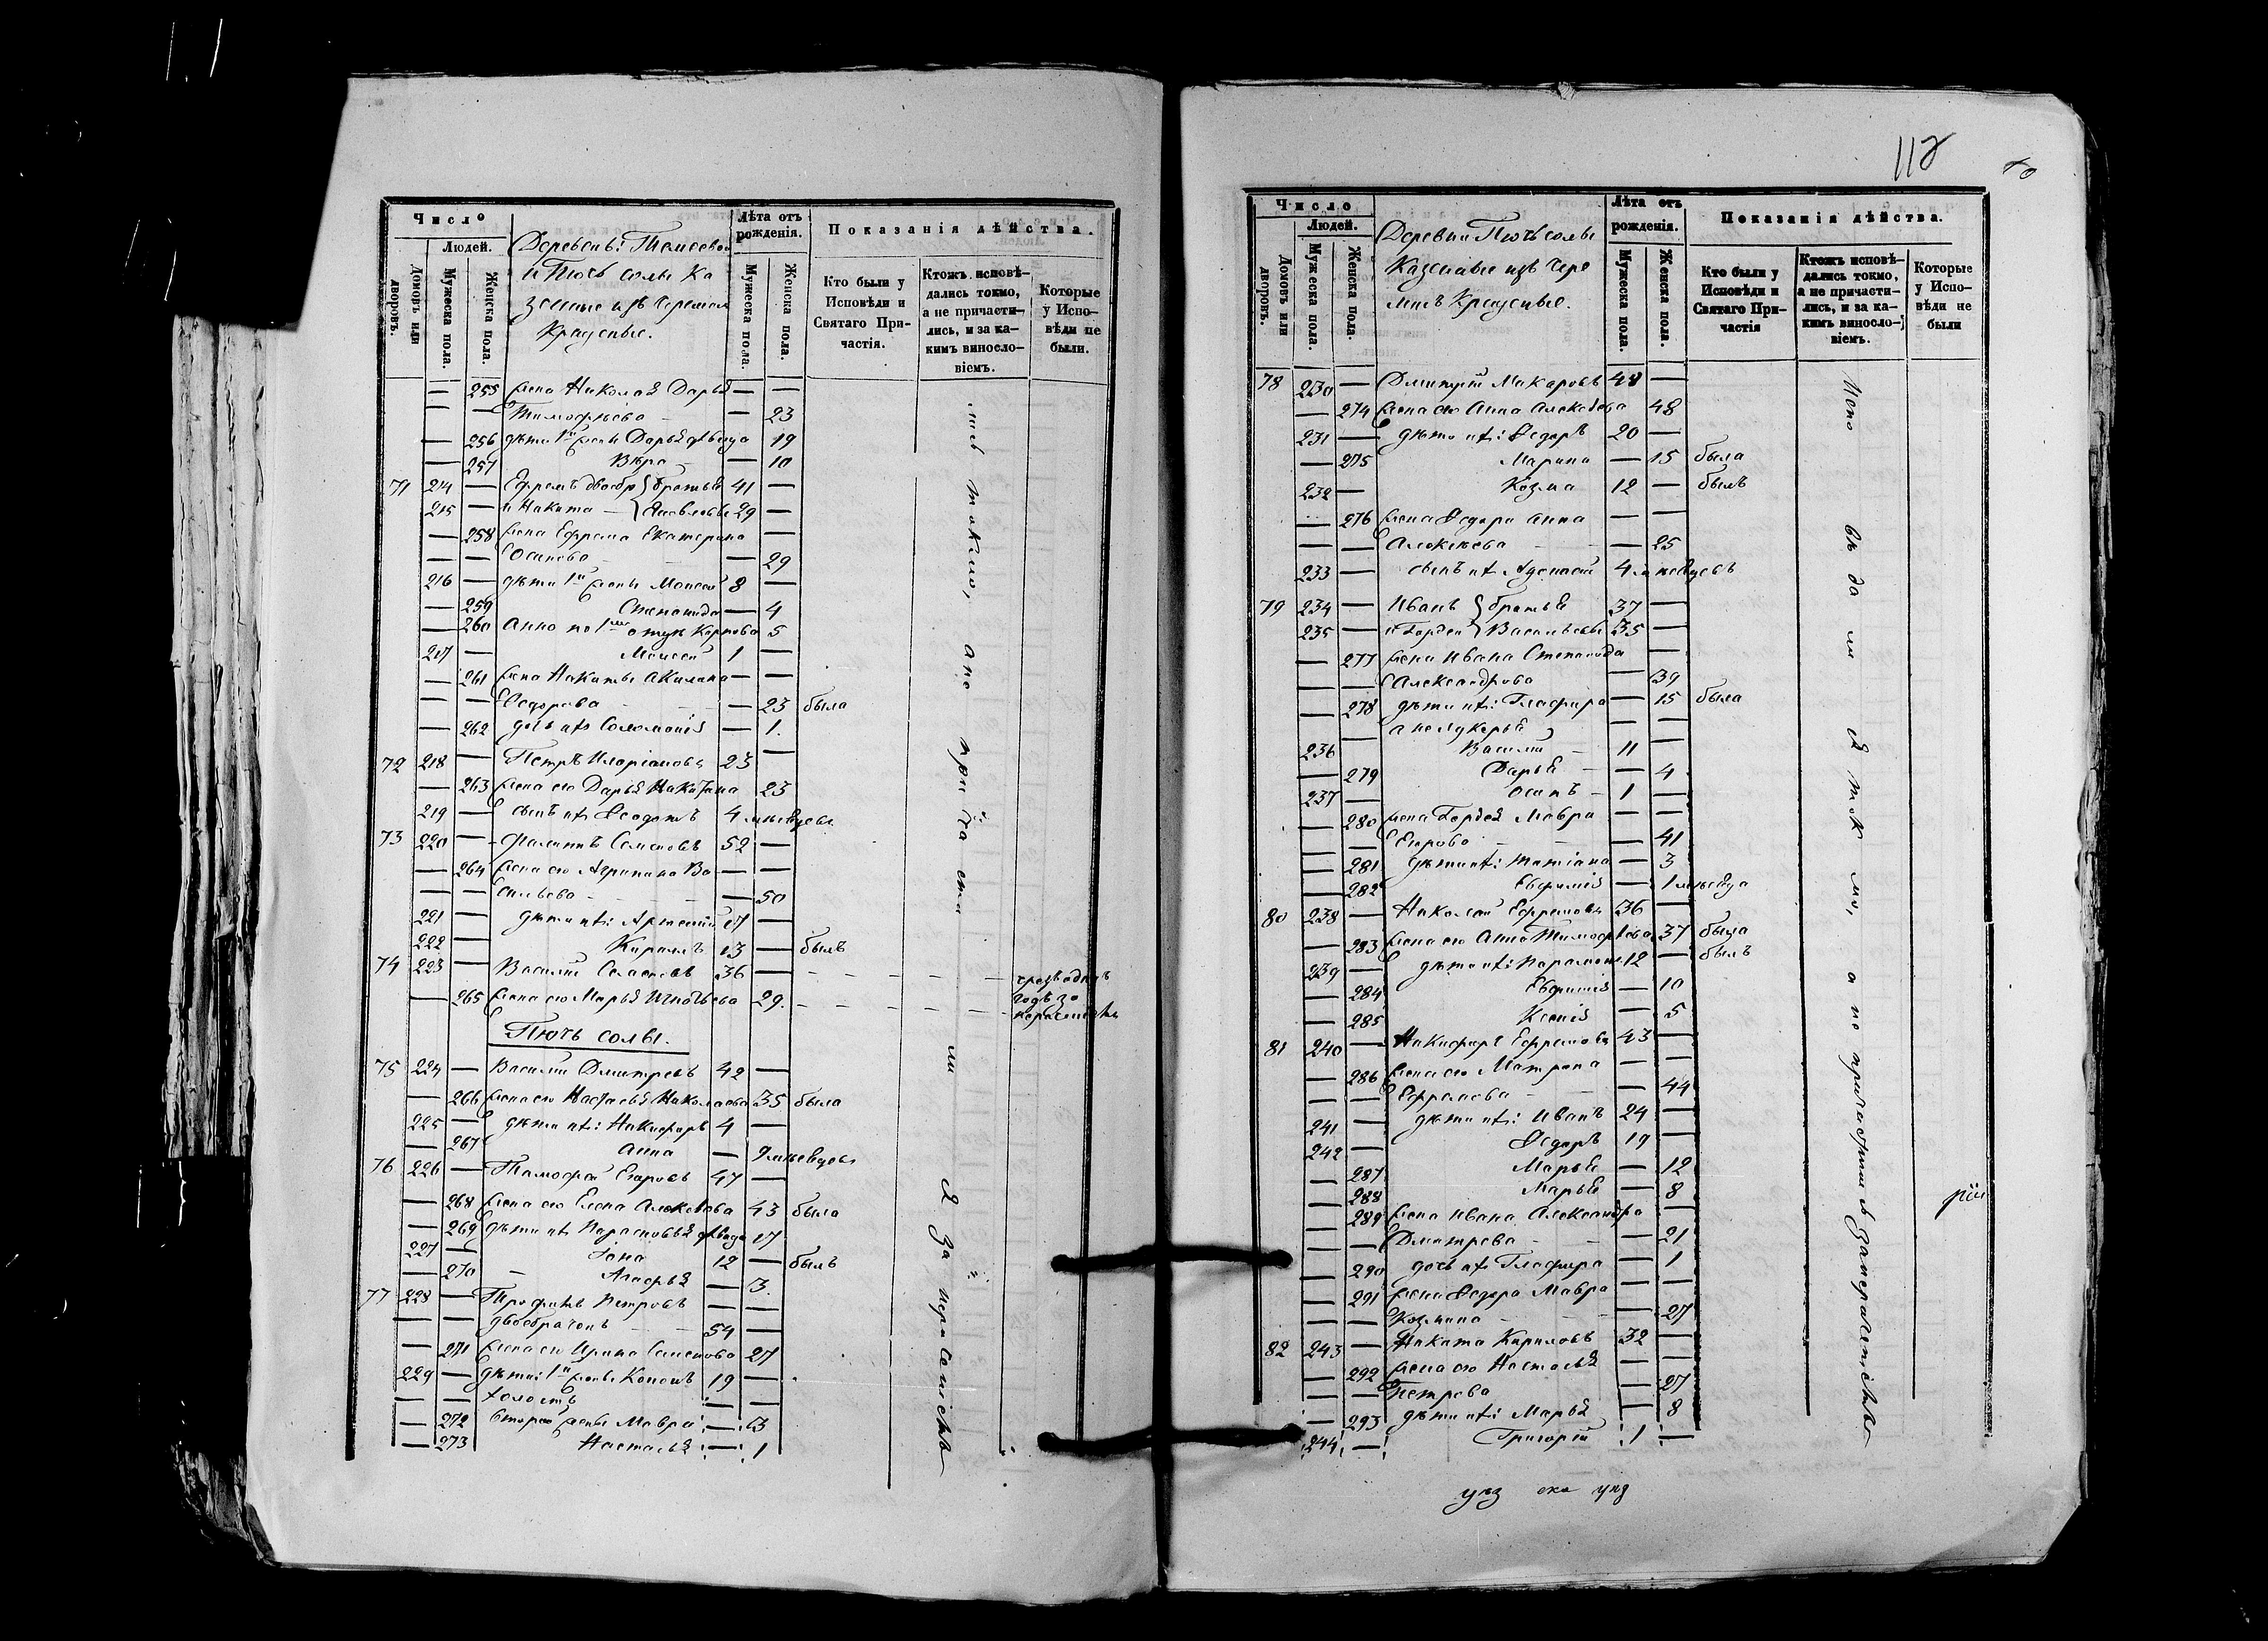 Число
Людей.
Домовъ или дворовъ.
Мужеска пола.
Женска пола.
и Пючь солы Ка
зенные изъ Черемисъ
Крещеные.
Лѣта отъ рожденія.
Мужеска пола.
Женска пола.
Показанія дѣйства.
Кто были у Исповѣди и Святаго Причастія.
Ктожъ исповѣдались токмо, а не причастились, и за какимъ винословіемъ.
Которые у Исповѣди не были.
— 255 жена Николая Дарья — —
— — Тимофѣева — 23
— 256 дѣти 1й жены Дарья дѣвица 19
— 257 Вѣра — 10
71 214 — Ефремъ двоебр братья 41 —
215 — и Никита Яковлевы 29 —
— 258 жена Ефрема Екатерина —
— — Осипова — 29
216 — дѣти 1й жены Моисей 8 —
— 259 Степанида — 4
— 260 Анна по 1му отцѣ Карпова 5
217 — Моисей 1 —
— 261 жена Никиты Акилина — —
— — Ѳедорова — 23 была
— 262 дочь ихъ Соломонія — 1.
72 218 — Петръ Иларіоновъ 23 —
— 263 жена его Дарья Никитина 23
219 — сынъ ихъ Ѳеодотъ 4 мѣсяцевъ
73 220 — Филиппъ Семеновъ 52 —
— 264 жена его Агрипина Ва — —
— — сильева — 50
221 — дѣти ихъ: Артемій 17 —
222 — Кирилъ 13 — былъ
74 223 — Василій 36 —
— 265 жена его Марья Игнатьева 29.
Пючь солы.
75 224 — Василій Дмитревъ 42 —
— 266 жена его Настасья Николаева 35 была
225 — дѣти ихъ: Никифоръ 4 —
— 267 Анна — 9 мѣсяцевъ
76 226 — Тимофей Егоровъ 47 —
— 268 жена его Елена Алексѣева 43 была
— 269 дѣти ихъ Парасковья дѣвица 17
227 — Іона 12 — былъ
— 270 Агафья — 3.
77 228 — Трофимъ Петровъ — —
— — двоебраченъ 54 —
— 271 жена его Ирина Семенова 27
229 — дѣти: 1й жены Кононъ 19 —
— — холостъ — —
— 272 второй жены Мавра — 3
— 273 Настасья — 1
исъ токмо, а не причастили ся за нерасеніемъ
112
Число
Людей.
Домовъ или дворовъ.
Мужеска пола.
Женска пола.
Деревни Пючь солы
Казенные изъ Чере
мисъ Крещеные.
Лѣта отъ рожденія.
Мужеска пола.
Женска пола.
Показанія дѣйства.
Кто были у Исповѣди и Святаго Причастія
Ктожъ исповѣдались токмо, а не причастились, и за какимъ винословіемъ.
Которые у Исповѣди не были
78 230 — Дмитрій Макаровъ 48 —
— 274 жена его Анна Алексѣева 48
231 — дѣти ихъ: Ѳедоръ 20 —
— 275 Марина — 15 была
232 — Козма 12 — былъ
— 276 жена Ѳедора Анна — —
— — Алексѣева — 25
233 — сынъ ихъ 4 мѣсяцевъ
79 234 — Иванъ братья 37 —
235 — и Гордей Васильевы 35 —
— 277 жена Ивана Степанида —
— — Александрова 39
— 278 дѣти ихъ: Глафира — 15 была
а не Лукерья — —
236 — Василій 11 —
— 279 Дарья — 4
237 — Осипъ 1 —
— 280 жена Гордея Мавра — —
— — Егорова — 41
— 281 дѣти ихъ: Татіана — 3
— 282 Евфимія — 1 мѣсяца
80 238 — Николай Ефремовъ 36 —
— 283 жена его Анна Тимофѣева 37 была
239 — дѣти ихъ: Парамонъ 12 — былъ
— 284 Евфимія — 10
— 285 Ксенія — 5
81 240 — Никифоръ Ефремовъ 43 —
— 286 жена его Матрона — —
— — Ефремова — 44
241 — дѣти ихъ: Иванъ 24 —
242 — Ѳедоръ 19 —
— 287 Марья — 12
— 288 Марья — 8
— 289 жена Ивана Александра —
— — Дмитрева — 21
— 290 дочь ихъ Глафира — 1
— 291 жена Ѳедора Мавра — —
— — Козмина — 27
82 243 — Никита Кириловъ 32 —
— 292 жена его Настасья — —
— — Петрова — 27
— 293 дѣти ихъ: Марья — 8
244 — Григорій 1 —
Испо вѣдали ся токмо, а не причастились за нерасеніемъ